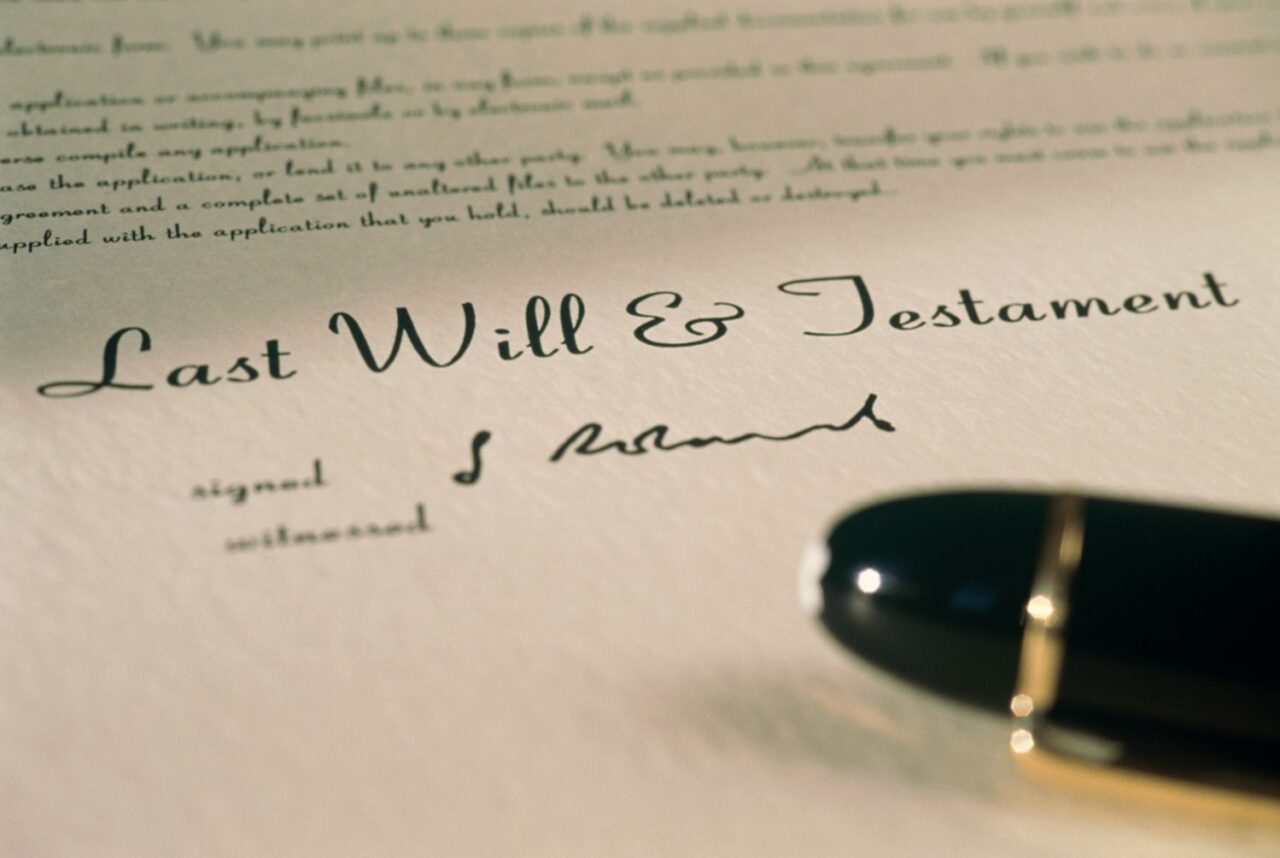 electronic form. You may print up to three copies of the supplied documentation for
application or accompanying files, in any form except as provided in this agreement. If you wish to
obtained in writing, by facsimile or by electronic mail.
erse compile any application.
ase the application, or lend it to any other party. You may, however, transfer your rights to use the application
greement and a complete set of unaltered files to the other party. At that time you must cease to use the
upplied with the application that you hold, should be deleted or destroyed.
Last Will & Testament
signed
witnessed